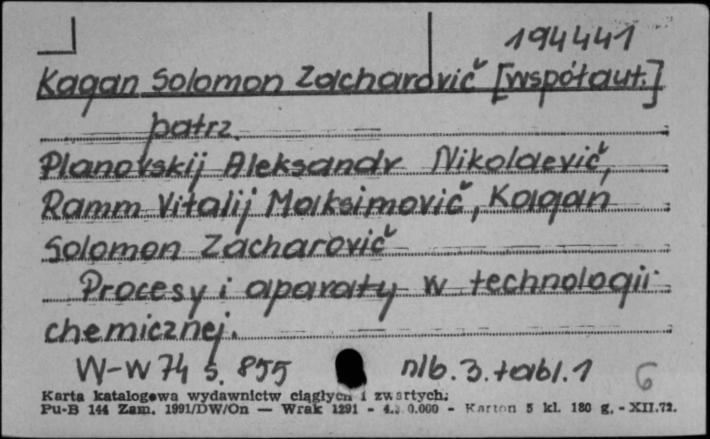 194441
Kagan Solomon Zacharovič [współaut.]
patrz
Planovskij Aleksandr Nikolaevič,
Ramm Vitalij Maksimovič, Kagan
Solomon Zacharovič
Procesy i aparaty w technologii
chemicznej.
W-w 74 s. 855 nlb. 3. tabl. 1
6
Karta katalogowa wydawnictw ciągłych i zwartych.
Pu-B 144 Zam. 1991/DW/On — Wrak 1291 - 0.000 - Karton 5 kl. 180 g. - XII.72.